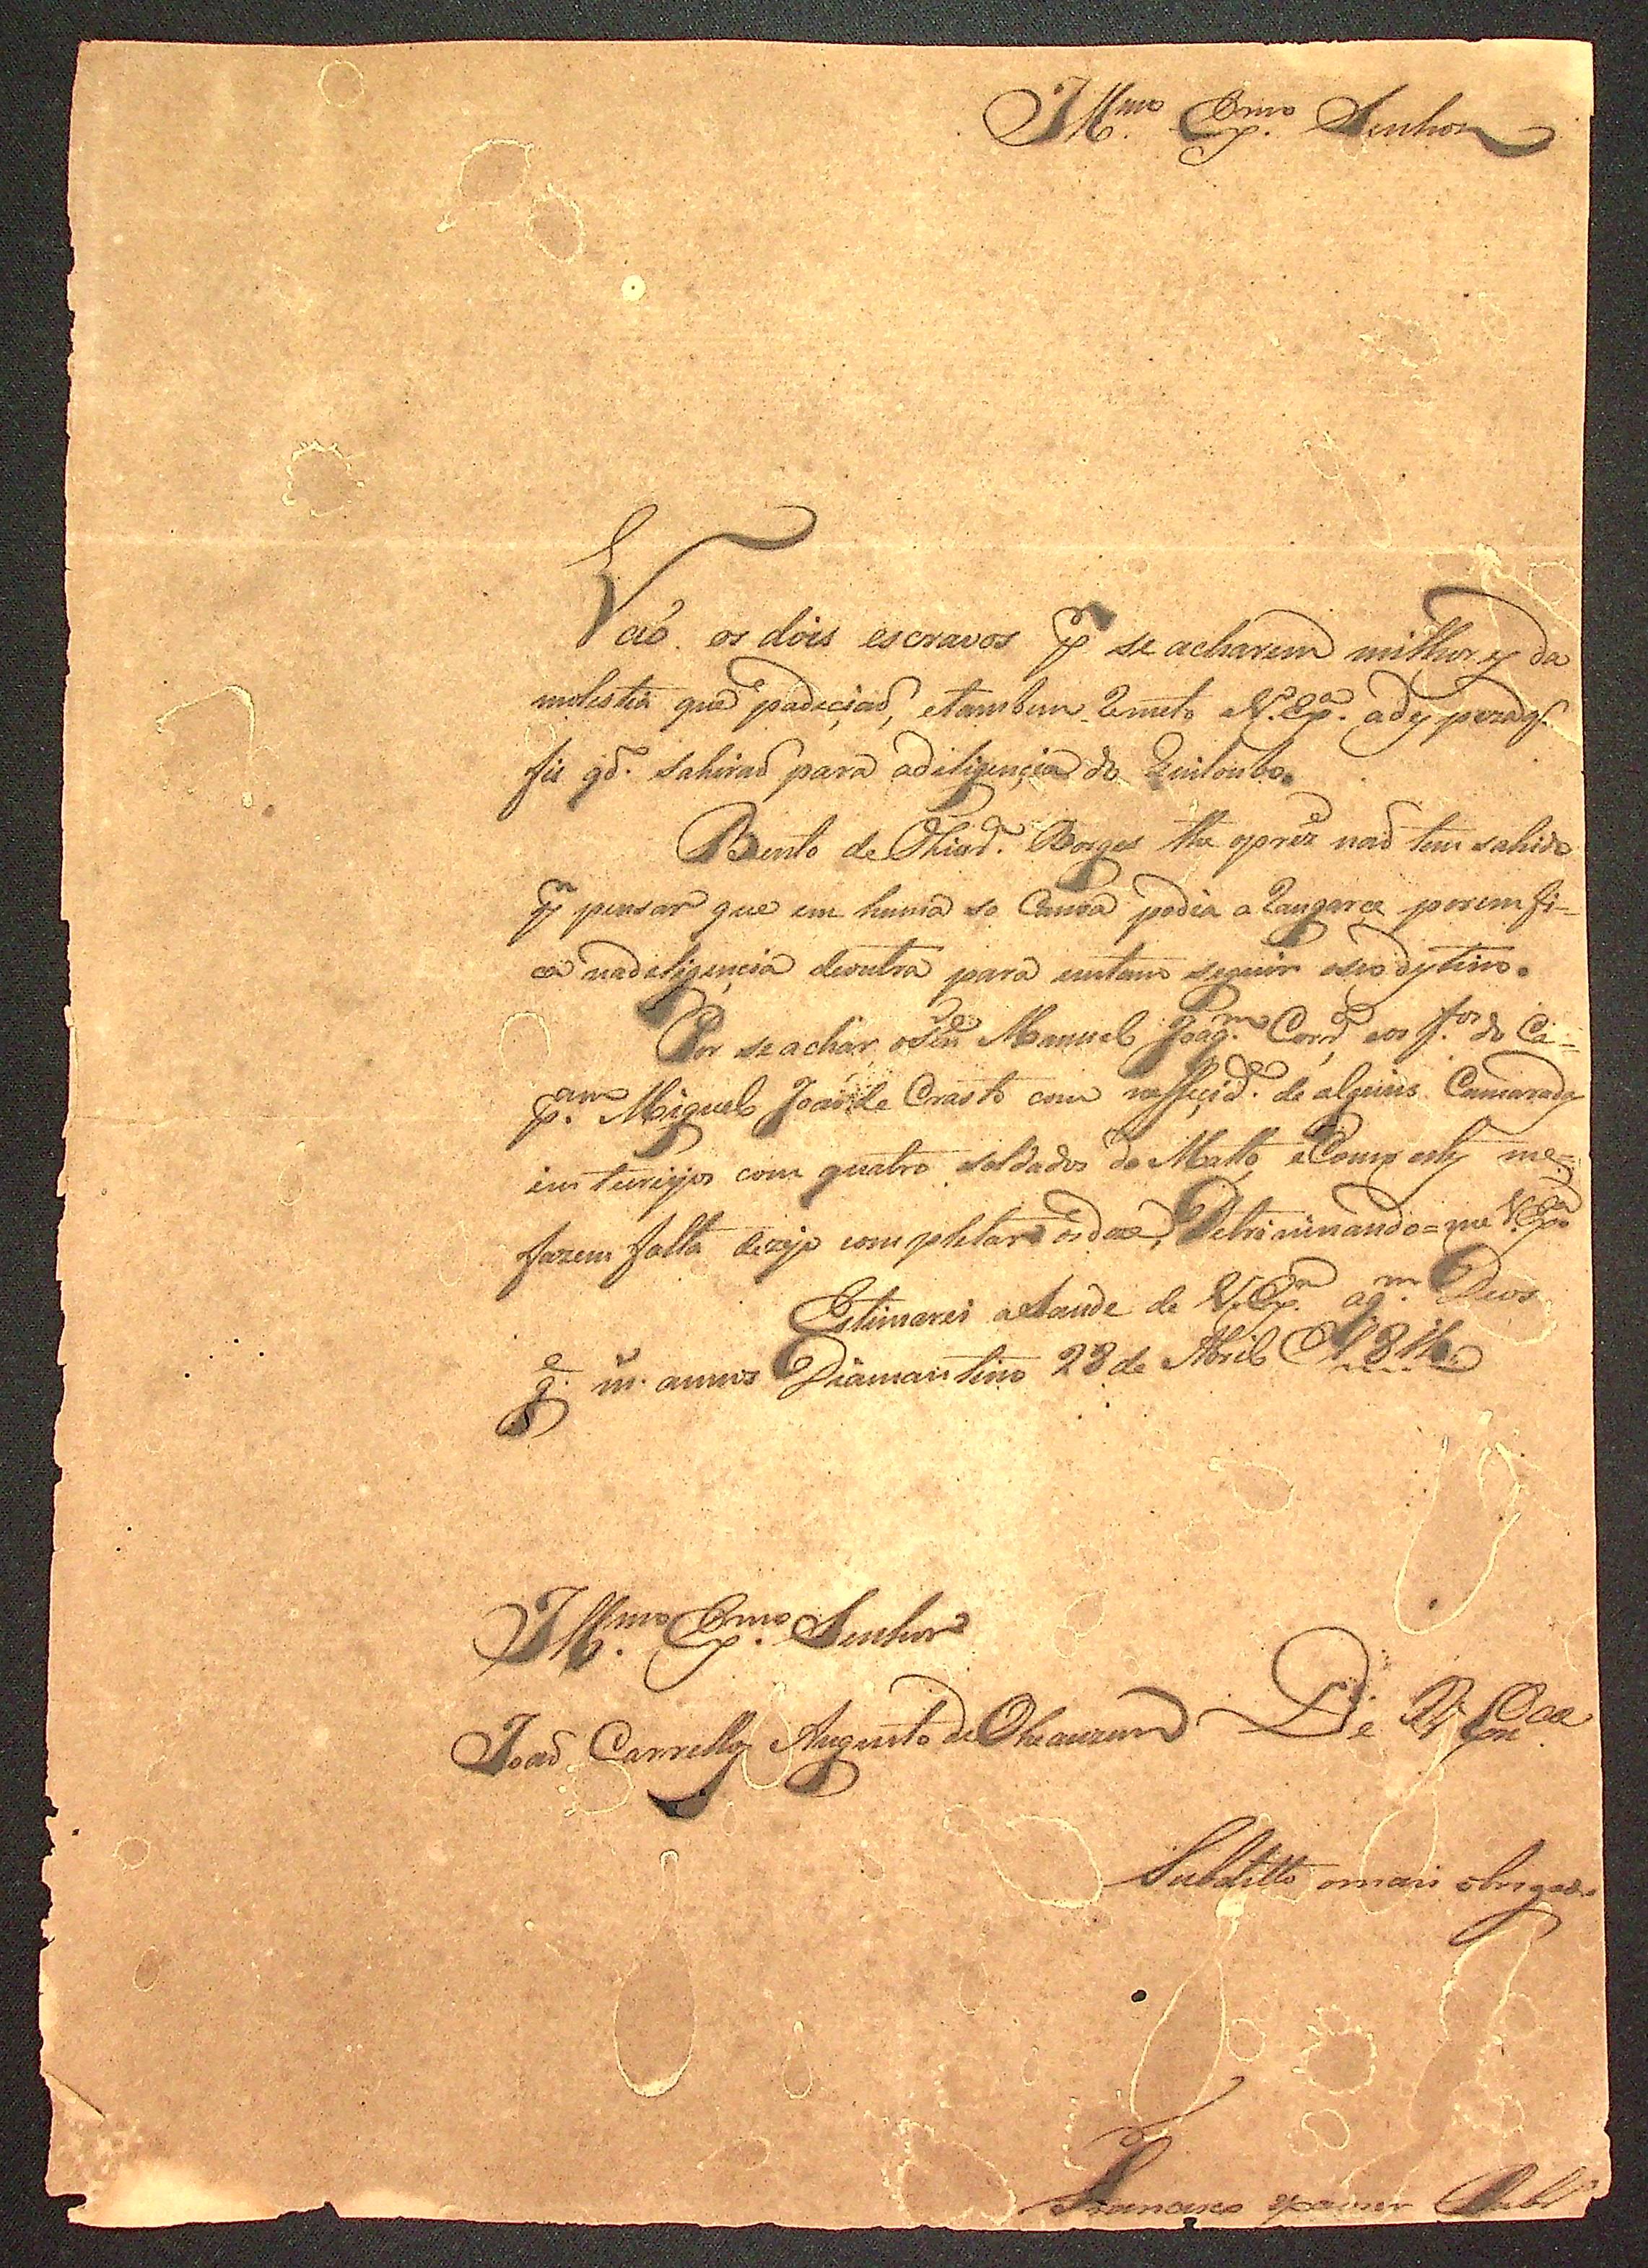 Ill.mo Ex.mo Senhor
Vaó os dois escravos p.r se acharem milhores da
molestia que padeciaõ, etambem Remeto a V. Ex.a
fis q.do sahiraõ para adiligençia do Quilombo.
Bento de Borges the opréz naõ tem sahido
p.r pensar que em huma so Canoa podia aRangarce porem fi-
ca nadeligençia deoutra para emtam seguir oseo destino.
Por se achar Manuel Joaq.m Corr.a eos f.os do Ca-
p.am Miguel Joaõ de Crasto com neffecid.e de alguns Camaradas
inteirijos com quatro soldados do Matto, eComo estes me-
fazem falta dezejo completar os doze, Detriminando=me V. Ex.a
Estimarei aSaude de V. Ex.a aq.m Deos
g.e m. annos Diamantino 28 de Abril
Ill.mo Ex.mo Senhor
Joaõ Carrellos Augusto de Oheauzem
De V. Ex.cia
Subditto omais obrigado
Francisco